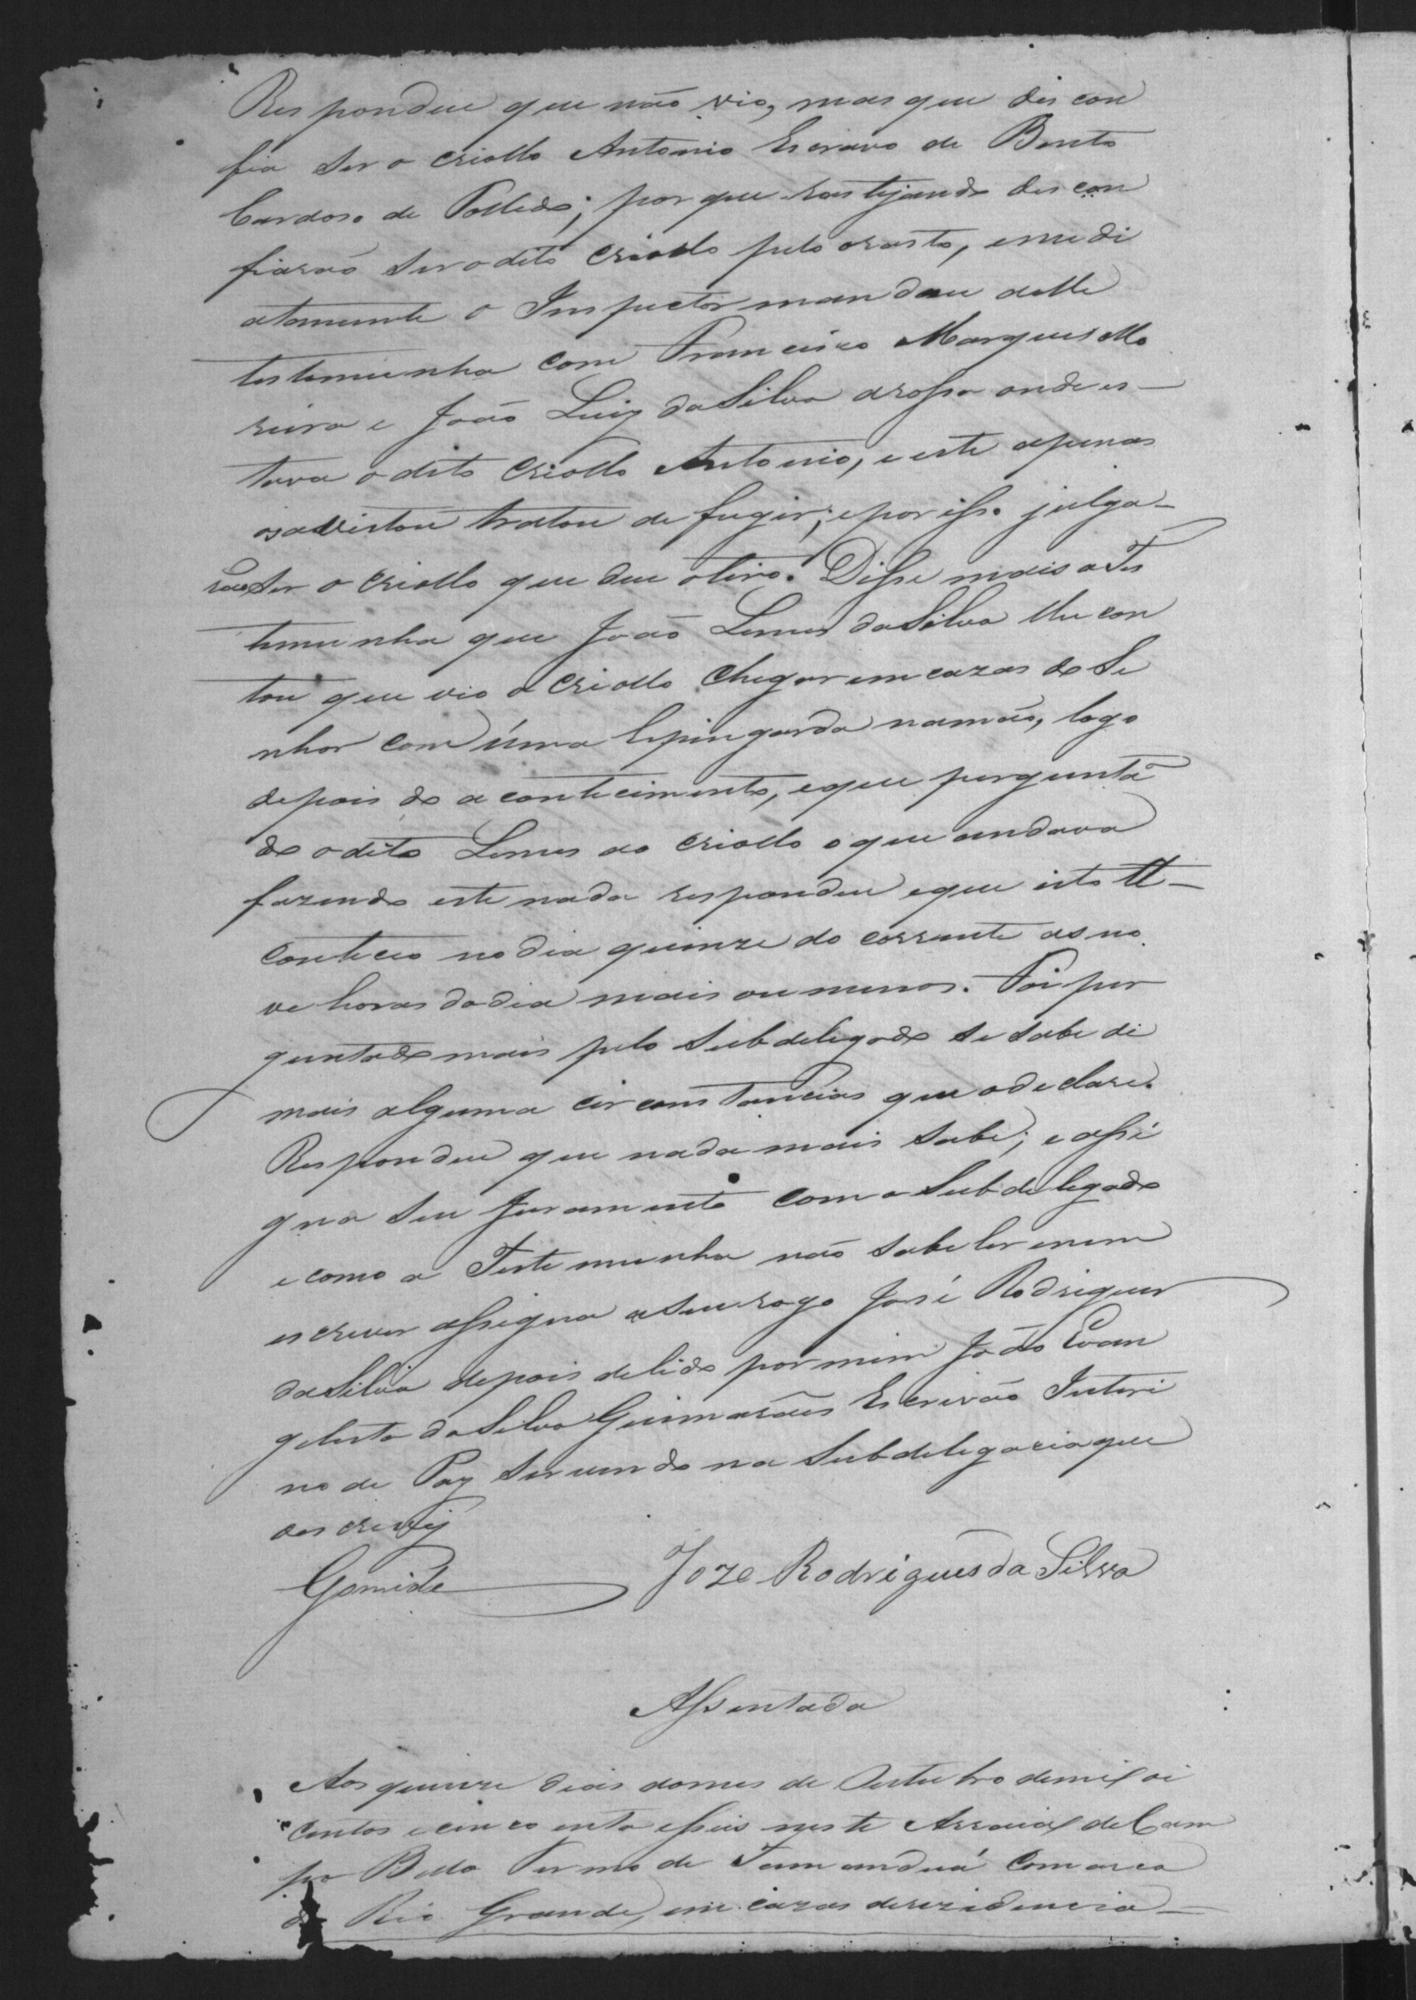 Respondeu que não vio, mas que descon
fia ser o criollo Antonio Escravo de Bento
Cardoso de Tolledo; por que rastejando descon
fiarão ser o dito criollo pelo rasto, emedi
atamente o Inspector mandou a elle
testemunha com Francisco Marques Mo
reira e João Luiz da Silva a rossa onde es-
tava o dito criollo Antonio, e este apenas
os avistou tratou de fugir; e por isso julga-
rão ser o criollo que deu o tiro. Disse mais a Tes
temunha que João Lemes da Silva lhe con
tou que vio o criollo chegar em cazas do Se
nhor com úma Espingarda na mão, logo
depois do acontecimento, e que perguntã
do o dito Lemes ao criollo o que andava
fazendo este nada respondeu e que isto A-
conteceo no dia quinze do corrente as no
ve horas do dia mais ou menos. Foi per
guntado mais pelo Subdelegado se sabe di
mais alguma circonstancias que o declare.
Respondeu que nada mais sabe; e assi
gna seu Juramento com o Subdelegado
e como a Testemunha não sabe ler e nem
escrever assigna a seu rogo José Rodrigues
da Silva depois de lido por mim João Evan
gelista da Silva Guimarães Escrivão Interi
no de Paz servindo na Subdelegacia que
o escrevij
Gomide Joze Rodrigues da Silva
Assentada
Aos quinze dias do mes de Outubro de mil oi
centos e cincoenta e seis neste Arraial de Cam
po Bello Termo de Tamanduá Comarca
do Rio Grande, em cazas de rezidencia-